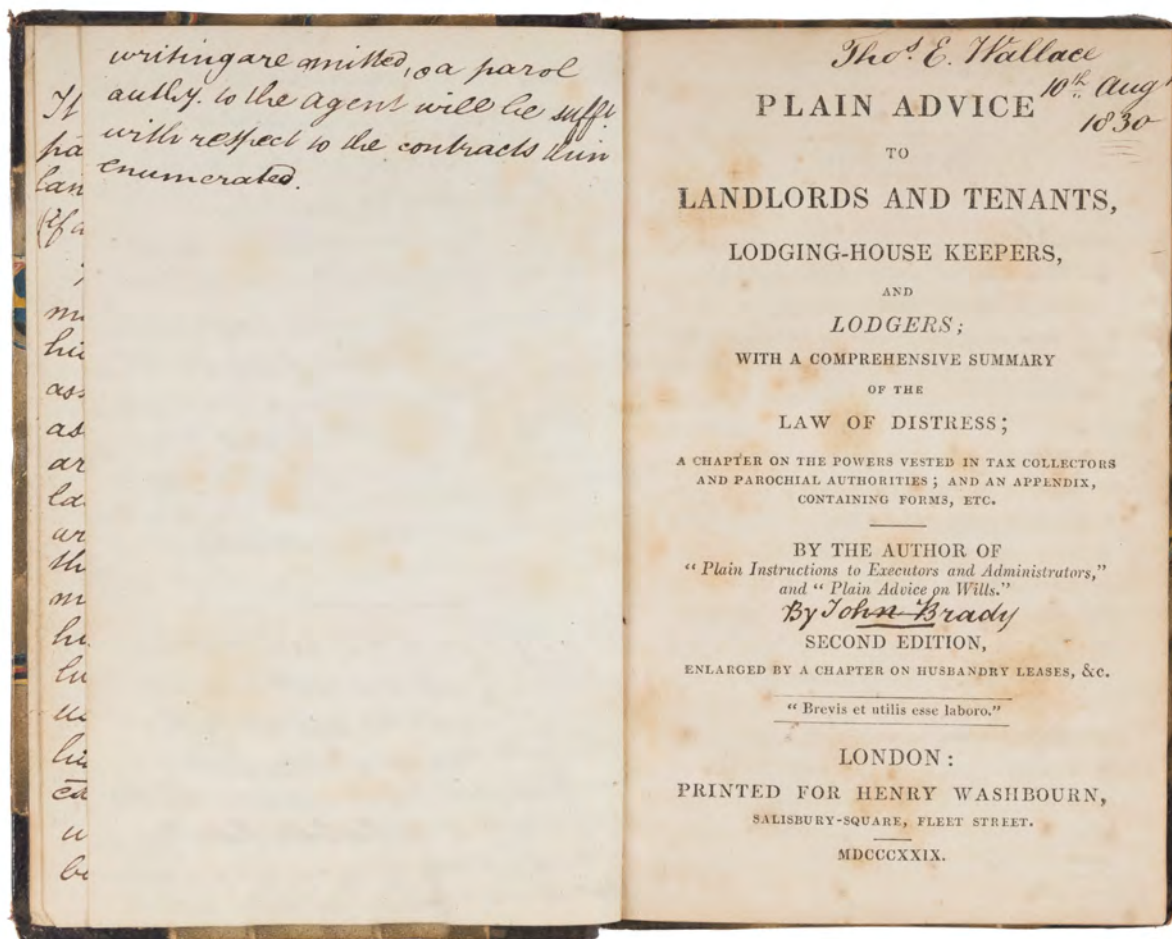 writing are omitted, a parol
authy. to the agent will be suffi
with respect to the contracts
enumerated.
It
pa
lan
(if a
m
his
ass
as
ar
la
ar
th
m
he
lu
his
u
be
Thos. E. Wallace
10th Augt
1830
PLAIN ADVICE
TO
LANDLORDS AND TENANTS,
LODGING-HOUSE KEEPERS,
AND
LODGERS;
WITH A COMPREHENSIVE SUMMARY
OF THE
LAW OF DISTRESS;
A CHAPTER ON THE POWERS VESTED IN TAX COLLECTORS
AND PAROCHIAL AUTHORITIES; AND AN APPENDIX,
CONTAINING FORMS, ETC.
BY THE AUTHOR OF
"Plain Instructions to Executors and Administrators,"
and "Plain Advice on Wills."
By John Brady
SECOND EDITION,
ENLARGED BY A CHAPTER ON HUSBANDRY LEASES, &c.
"Brevis et utilis esse laboro."
LONDON:
PRINTED FOR HENRY WASHBOURN,
SALISBURY-SQUARE, FLEET STREET.
MDCCCXXIX.